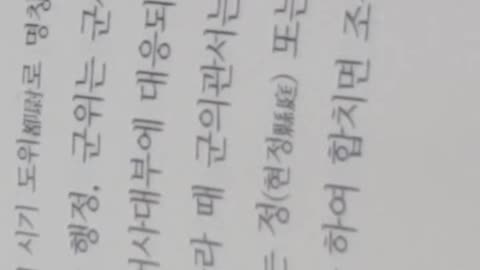 시기 도위都尉로 명칭
행정, 군위는 군
사대부에 대응되
라 때 군의관서는
는 정(현정縣庭) 또는
하여 합치면 조